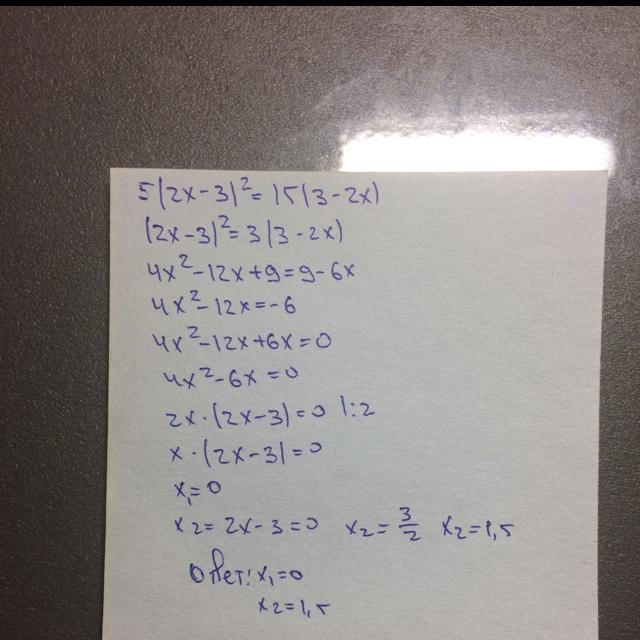 5(2x-3)²=15(3-2x)
(2x-3)²=3(3-2x)
4x²-12x+9=9-6x
4x²-12x=-6
4x²-12x+6x=0
4x²-6x=0
2x·(2x-3)=0 |:2
x·(2x-3)=0
x₁=0
x₂=2x-3=0 x₂=3/2 x₂=1,5
Ответ: x₁=0
x₂=1,5